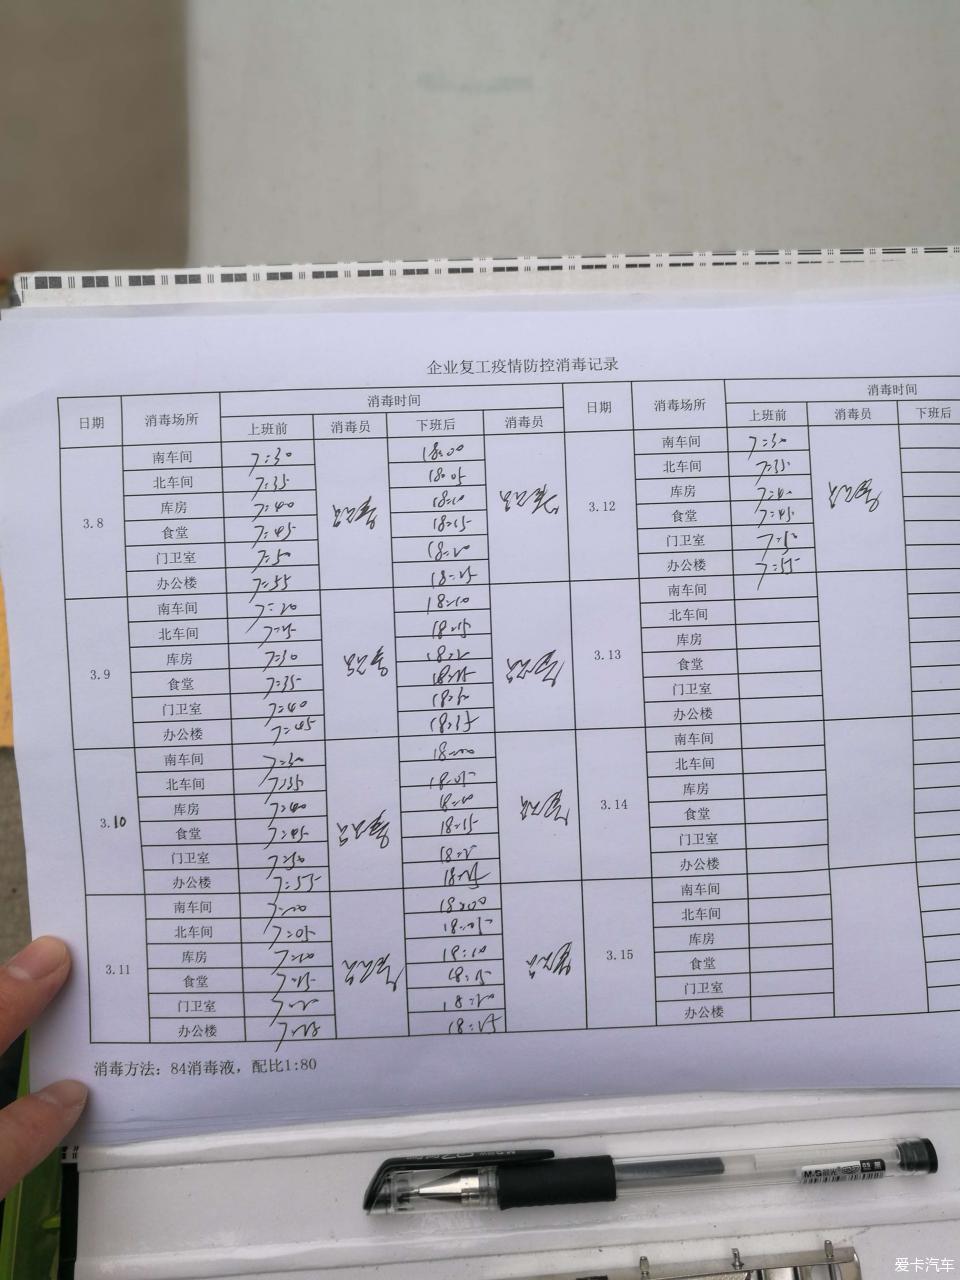 企业复工疫情防控消毒记录
日期 消毒场所 消毒时间 日期 消毒场所 消毒时间
上班前 消毒员 下班后 消毒员 上班前 消毒员 下班后
3.8 南车间 7:30 18:00 3.12 南车间 7:30
北车间 7:35 18:05 北车间 7:35
库房 7:40 18:10 库房 7:40
食堂 7:45 18:15 食堂 7:45
门卫室 7:50 18:20 门卫室 7:50
办公楼 7:55 18:25 办公楼 7:55
3.9 南车间 7:20 18:10 3.13 南车间
北车间 7:25 18:15 北车间
库房 7:30 库房
食堂 7:35 18:25 食堂
门卫室 7:40 门卫室
办公楼 7:45 18:35 办公楼
3.10 南车间 7:30 18:00 3.14 南车间
北车间 7:35 18:05 北车间
库房 7:40 18:10 库房
食堂 7:45 18:15 食堂
门卫室 7:50 门卫室
办公楼 7:55 18:25 办公楼
3.11 南车间 7:00 18:00 3.15 南车间
北车间 7:05 18:05 北车间
库房 7:10 18:10 库房
食堂 7:15 18:15 食堂
门卫室 7:20 18:20 门卫室
办公楼 7:25 18:25 办公楼
消毒方法：84消毒液，配比1:80
M&G 晨光
爱卡汽车